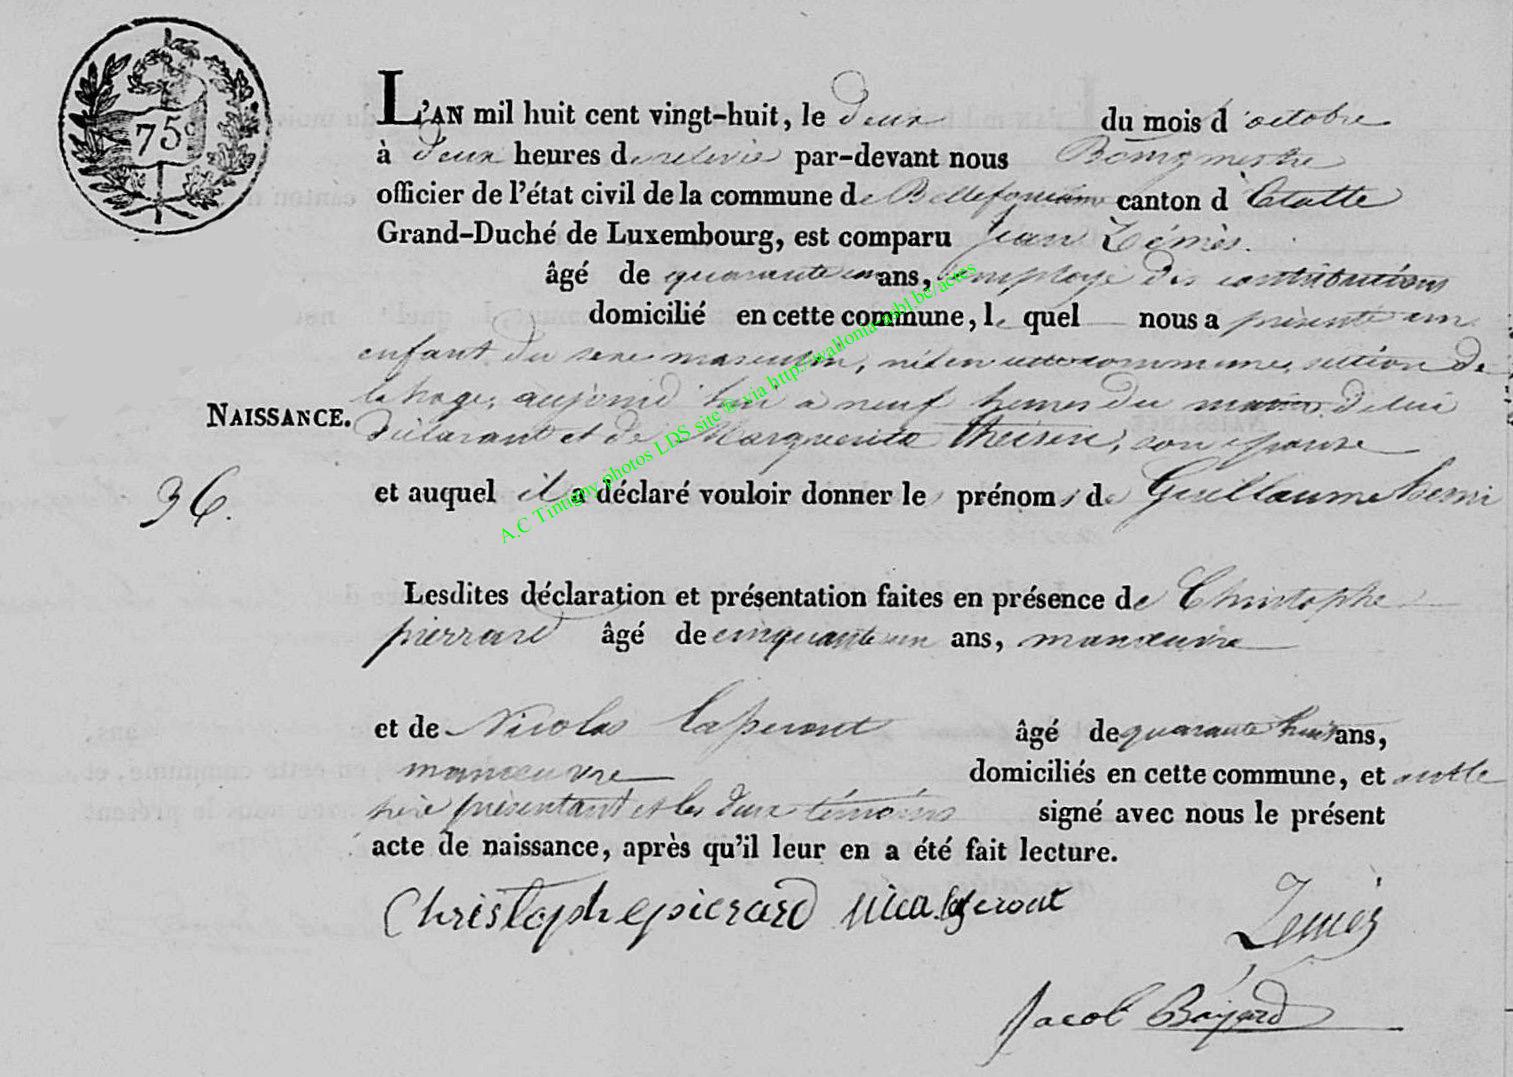 75c
L'AN mil huit cent vingt-huit, le deux du mois d'octobre
à deux heures de relevée par-devant nous Bourgmestre
officier de l'état civil de la commune de Bellefontaine canton d'Etalle
Grand-Duché de Luxembourg, est comparu Jean Zémès.
âgé de quarante un ans, employé des contributions
domicilié en cette commune, le quel nous a présenté un
enfant du sexe masculin, né en cette commune, section de
lahage, aujourd'hui à neuf heures du matin, de lui
NAISSANCE.
Déclarant et de Marguerite theisen, son épouse
36.
et auquel il a déclaré vouloir donner les prénoms de Guillaume henri
Lesdites déclaration et présentation faites en présence de Christophe
pierrard âgé de cinquante un ans, manœuvre
et de Nicolas laperout âgé de quarante huit ans,
manœuvre domiciliés en cette commune, et
présentant et les deux témoins signé avec nous le présent
acte de naissance, après qu'il leur en a été fait lecture.
Christophe pierard laperout Zemès
Jacob Bayard
A.C Tintigny photos LDS site ® via http://wallonia-asbl.be/actes